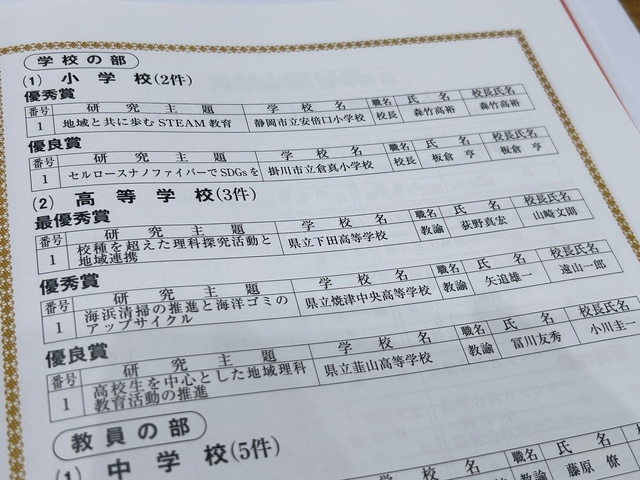 学校の部
(1) 小学校(2件)
優秀賞
番号 研究主題 学校名 職名 氏名 校長氏名
1 地域と共に歩むSTEAM教育 静岡市立安倍口小学校 校長 森竹高裕 森竹高裕
優良賞
番号 研究主題 学校名 職名 氏名 校長氏名
1 セルロースナノファイバーでSDGsを 掛川市立倉真小学校 校長 板倉亨 板倉亨
(2) 高等学校(3件)
最優秀賞
番号 研究主題 学校名 職名 氏名 校長氏名
1 校種を超えた理科探究活動と 県立下田高等学校 教諭 荻野真宏 山崎文則
地域連携
優秀賞
番号 研究主題 学校名 職名 氏名 校長氏名
1 海浜清掃の推進と海洋ゴミの 県立焼津中央高等学校 教諭 矢追雄一 遠山一郎
アップサイクル
優良賞
番号 研究主題 学校名 職名 氏名 校長氏名
1 高校生を中心とした地域理科 県立韮山高等学校 教諭 冨川友秀 小川圭一
教育活動の推進
教員の部
(1) 中学校(5件)
学校名 職名 氏名
教諭 藤原僚